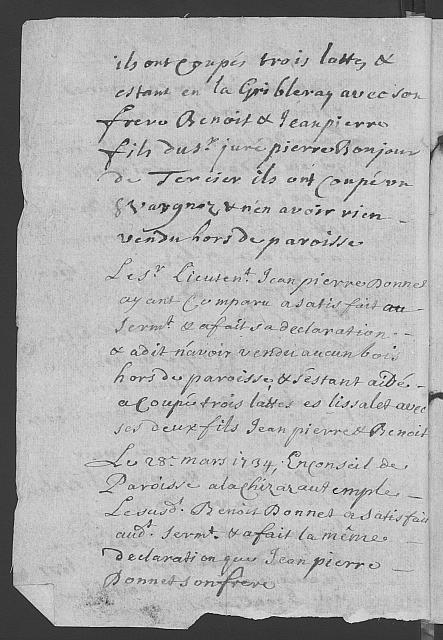 ils ont coupés trois lattes &
estant en la Gribleray avec son
frere Benoit & Jeanpierre
fils du sr. juré pierre Bonjour
de Tercier ils ont Coupé un
& n'en avoir rien -
vendu hors de paroisse
Le sr. Lieutent. Jean pierre Bonnet
ayant Comparu a satisfait au
sermt. & a fait sa declaration -
& a dit n'avoir vendu aucun bois
hors de paroisse, & s'estant aidé -
a Coupé trois lattes es lissalet avec
ses deux fils Jean pierre & Benoit
Le 28e. mars 1734, En conseil de
Paroisse a la Chizaz au temple -
Le susd. Benoit Bonnet a satisfait
aud. sermt. & a fait la même
declaration que Jean pierre -
Bonnet son frere